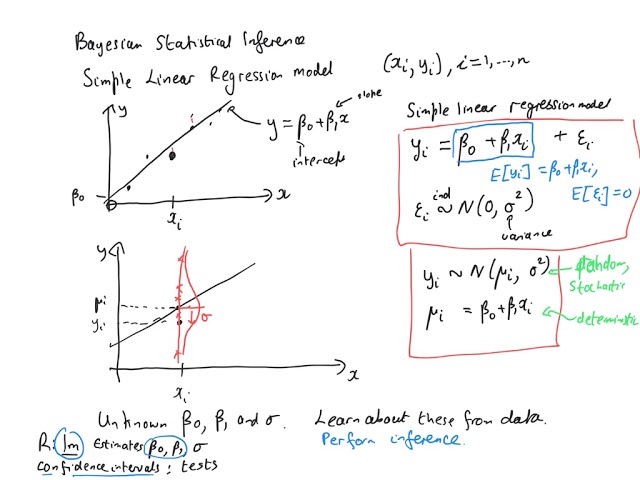 Bayesian Statistical Inference
Simple Linear Regression model
(xᵢ, yᵢ), i=1,...,n
y
slope
y = β₀+β₁x
intercept
β₀
xᵢ
x
Simple linear regression model
yᵢ = β₀ + β₁xᵢ + εᵢ
E[yᵢ] = β₀+β₁xᵢ,
E[εᵢ]=0
εᵢ ind ~ N(0, σ²)
variance
y
μᵢ
yᵢ
σ
xᵢ
x
yᵢ ~ N(μᵢ, σ²)
random,
stochastic
μᵢ = β₀+β₁xᵢ
deterministic
Unknown β₀, β₁ and σ. Learn about these from data.
Perform inference.
R: lm Estimates β₀, β₁, σ
confidence intervals; tests